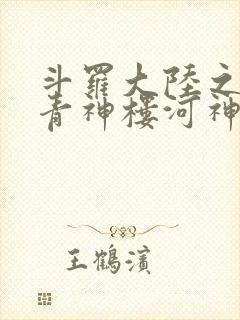 斗羅大陸之
青神樓河神
王鶴濱